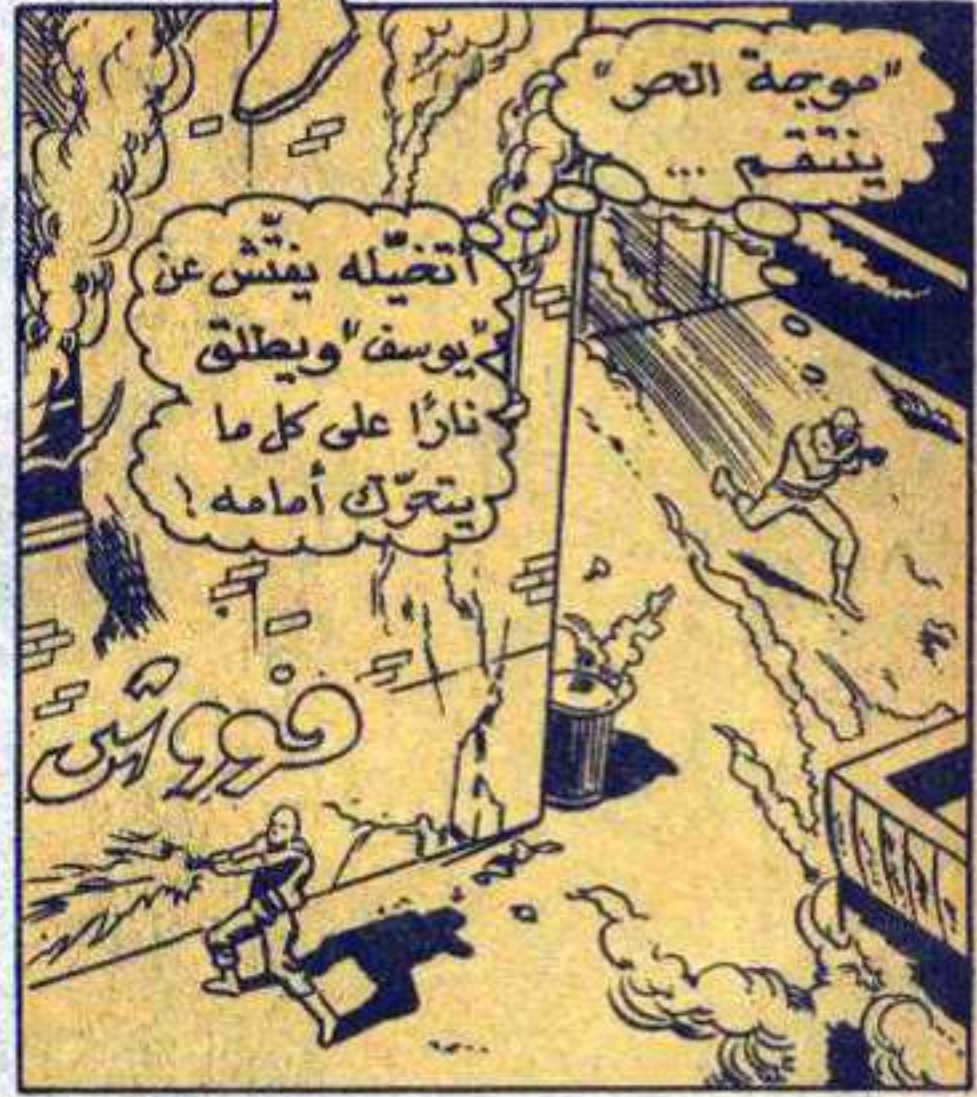 "موجة الحر"
ينتقم ...
أتخيّله يفتّش عن
"يوسف" ويطلق
نارًا على كل ما
يتحرّك أمامه !
فووووش